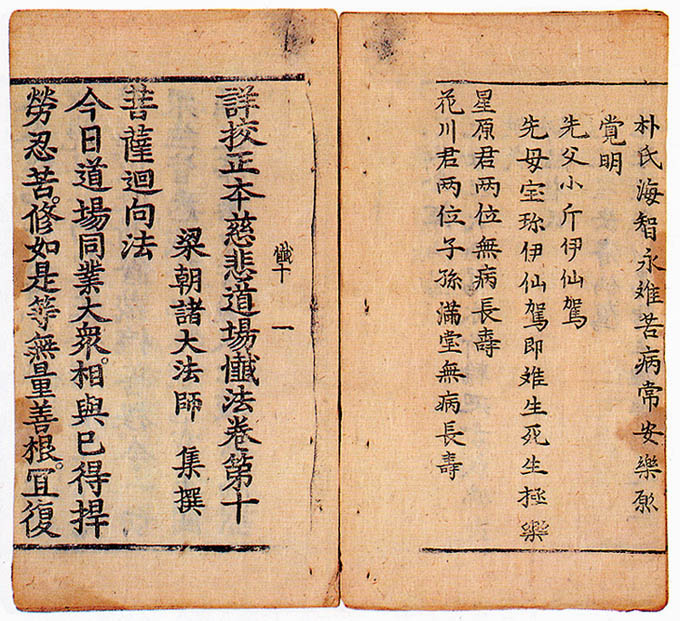 朴氏海智永離苦病常安樂愿
覚明
先父小斤伊仙駕
先母宝珎伊仙駕即離生死生極樂
星原君两位無病長壽
花川君两位子孫滿堂無病長壽
懺十 一
詳挍正本慈悲道場懺法卷第十
梁朝諸大法師 集撰
菩薩迴向法
今日道場同業大衆。相與已得捍
勞忍苦。修如是等無量善根。宜復